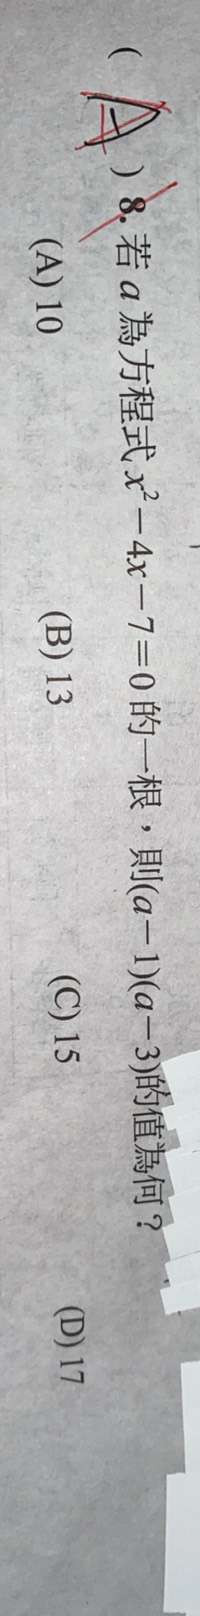 ( A ) 8. 若 a 為方程式 x²－4x－7=0 的一根，則(a－1)(a－3)的值為何？
(A) 10 (B) 13 (C) 15 (D) 17